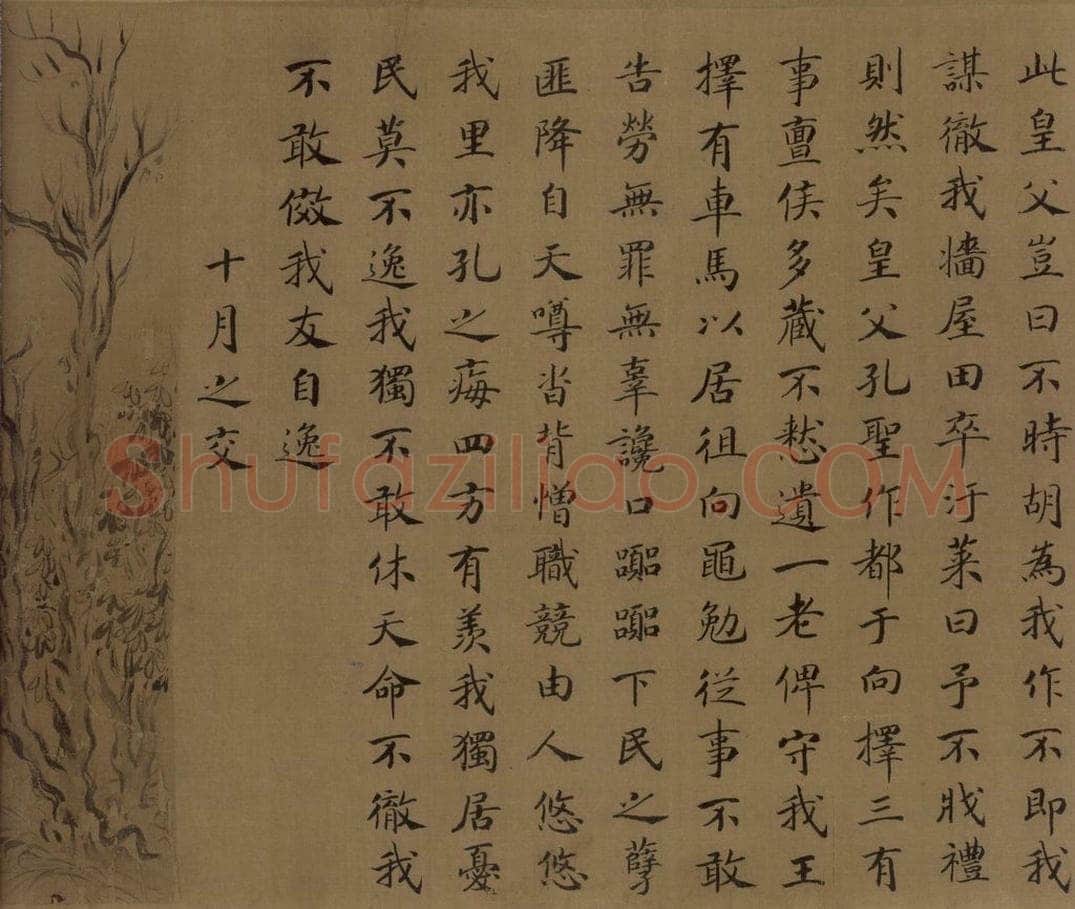 此皇父豈曰不時胡為我作不即我
謀徹我牆屋田卒汙萊曰予不戕禮
則然矣皇父孔聖作都于向擇三有
事亶侯多藏不憖遺一老俾守我王
擇有車馬以居徂向黽勉從事不敢
告勞無罪無辜讒口嚻嚻下民之孽
匪降自天噂沓背憎職競由人悠悠
我里亦孔之痗四方有羨我獨居憂
民莫不逸我獨不敢休天命不徹我
不敢傚我友自逸
十月之交
Shufaziliao.COM